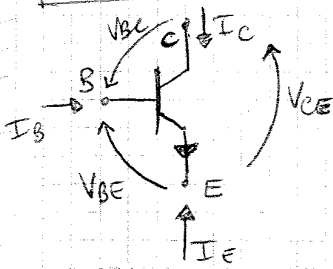 V_BC
C
I_C
B
I_B
V_CE
V_BE
E
I_E